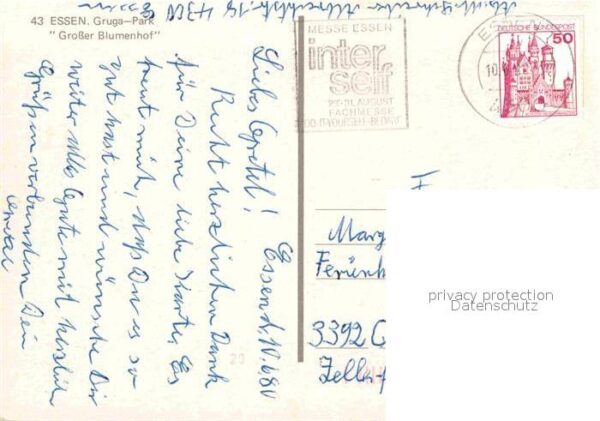 43 ESSEN. Gruga-Park
"Großer Blumenhof"
4300
Essen
MESSE ESSEN
inter
seit
27.-31. AUGUST
FACHMESSE
DO-IT-YOURSELF-BEDARF
ESSEN
10.
DEUTSCHE BUNDESPOST
50
Essen d. 10.6.80
Liebe Gretel!
Recht herzlichen Dank
für Deine liebe Karte, Es
freut mich, daß Du es so
gut hast und wünsche Dir
weiter alles Gute mit herzlich
Grüßen verbunden Dein
Marg
Ferienh
3392 C
Zelle
20
privacy protection
Datenschutz